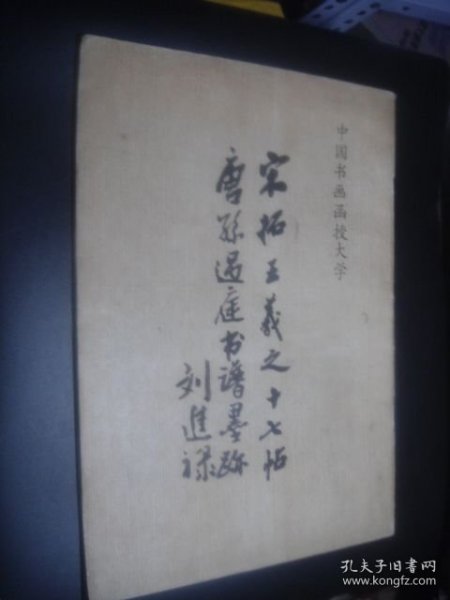 中国书画函授大学
宋拓王羲之十七帖
唐孙过庭书谱墨跡
刘進禄
孔夫子旧书网
www.kongfz.com